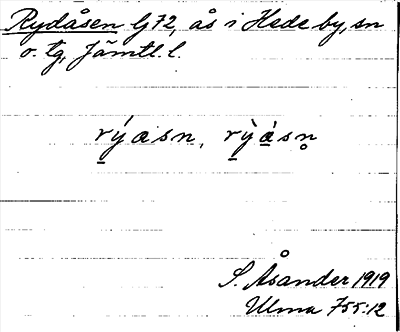 Rydåsen G 72, ås i Hede by, sn
o. tg, Jämtl. l.
r̲ýasn, r̲ỳa̲̍sn̥
S. Åsander 1919
Ulma 755:12